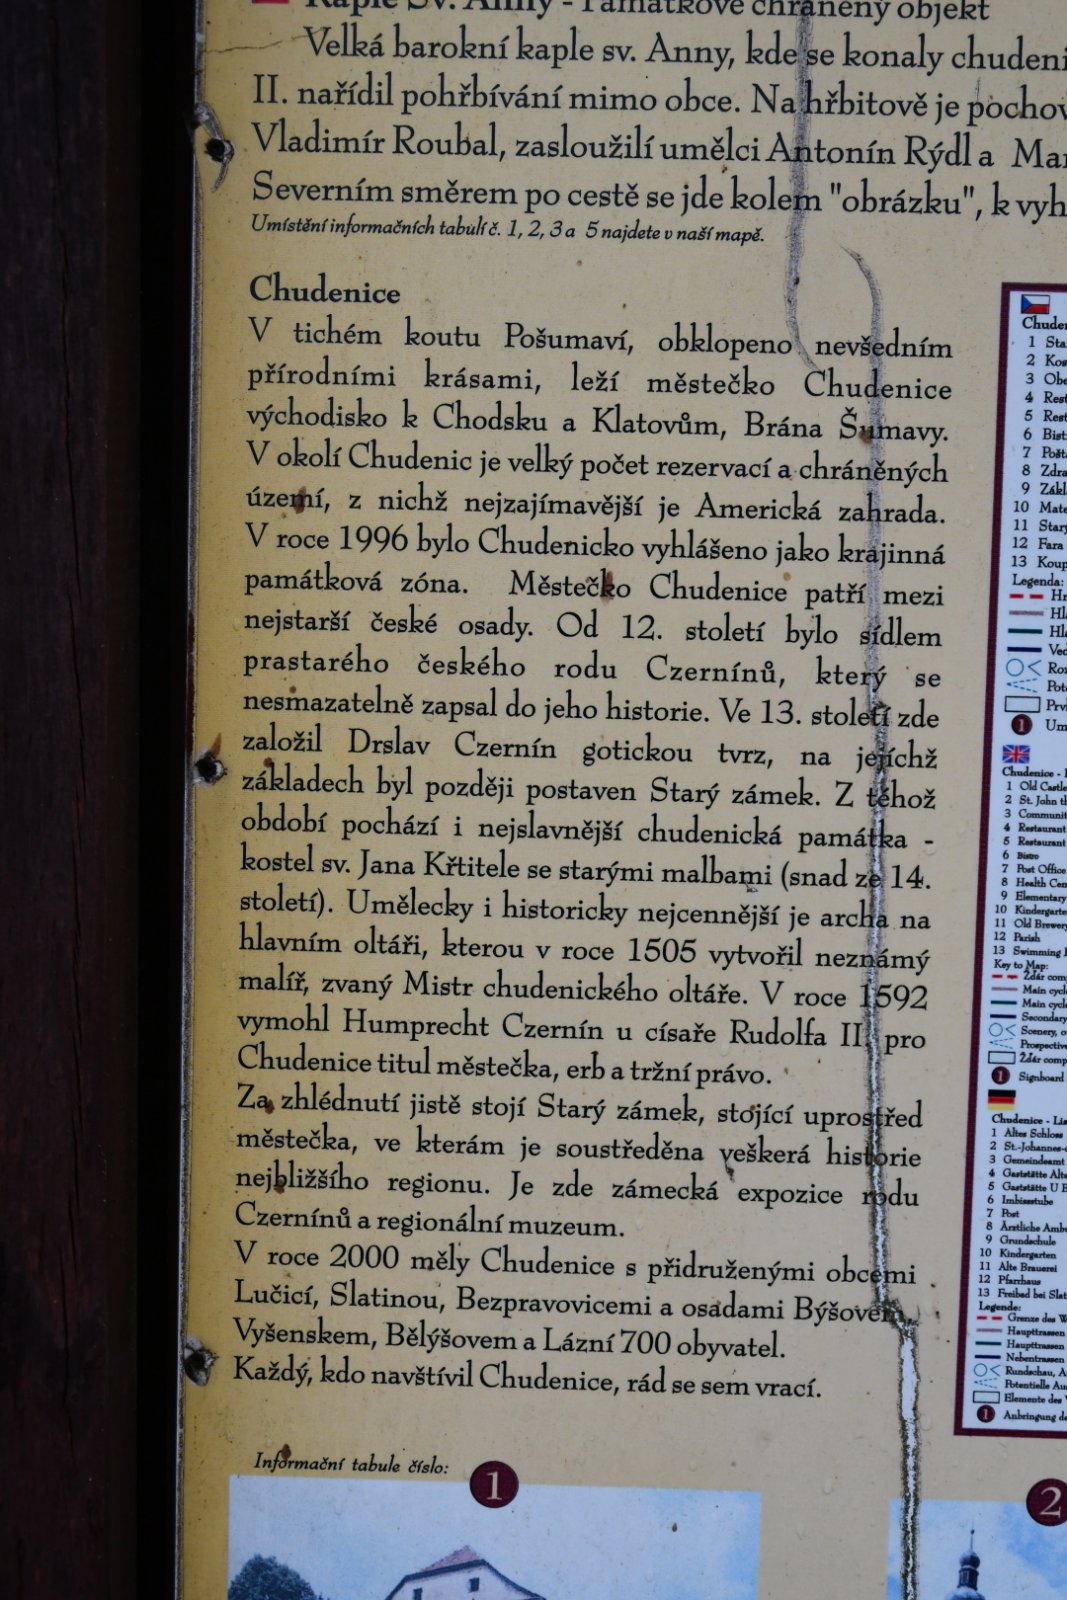 Kaple Sv. Anny - Památkově chráněný objekt
Velká barokní kaple sv. Anny, kde se konaly
II. nařídil pohřbívání mimo obce. Na hřbitově je
Vladimír Roubal, zasloužilí umělci Antonín Rýdl a
Severním směrem po cestě se jde kolem "obrázku", k
Umístění informačních tabulí č. 1, 2, 3 a 5 najdete v naší mapě.
Chudenice
V tichém koutu Pošumaví, obklopeno nevšedním
přírodními krásami, leží městečko Chudenice
východisko k Chodsku a Klatovům, Brána Šumavy.
V okolí Chudenic je velký počet rezervací a chráněných
území, z nichž nejzajímavější je Americká zahrada.
V roce 1996 bylo Chudenicko vyhlášeno jako krajinná
památková zóna. Městečko Chudenice patří mezi
nejstarší české osady. Od 12. století bylo sídlem
prastarého českého rodu Czernínů, který se
nesmazatelně zapsal do jeho historie. Ve 13. století zde
založil Drslav Czernín gotickou tvrz, na jejíchž
základech byl později postaven Starý zámek. Z téhož
období pochází i nejslavnější chudenická památka -
kostel sv. Jana Křtitele se starými malbami (snad ze 14.
století). Umělecky i historicky nejcennější je archa na
hlavním oltáři, kterou v roce 1505 vytvořil neznámý
malíř, zvaný Mistr chudenického oltáře. V roce 1592
vymohl Humprecht Czernín u císaře Rudolfa II. pro
Chudenice titul městečka, erb a tržní právo.
Za zhlédnutí jistě stojí Starý zámek, stojící uprostřed
městečka, ve kterám je soustředěna veškerá historie
nejbližšího regionu. Je zde zámecká expozice rodu
Czernínů a regionální muzeum.
V roce 2000 měly Chudenice s přidruženými obcemi
Lučicí, Slatinou, Bezpravovicemi a osadami Býšovem,
Vyšenskem, Bělýšovem a Lázní 700 obyvatel.
Každý, kdo navštívil Chudenice, rád se sem vrací.
Informační tabule číslo:
1
2
1
2
3
4
5
6
7
8
9
10
11
12 Fara
13
Legenda:
1
Chudenice -
1 Old Castle
2 St. John
3
4 Restaurant
5 Restaurant
6 Bistro
7 Post Office
8 Health
9 Elementary
10
11 Old Brewery
12 Parish
13 Swimming
Key to Map:
Žďár
Main
Main
Secondary
Scenery,
Prospective
Žďár
1 Signboard
Chudenice -
1 Altes Schloss
2
3 Gemeindeamt
4 Gaststätte
5 Gaststätte U
6 Imbissstube
7 Post
8 Ärztliche
9 Grundschule
10 Kindergarten
11 Alte Brauerei
12 Pfarrhaus
13 Freibad bei
Legende:
Grenze des
Haupttrassen
Haupttrassen
Nebentrassen
Rundschau,
Potentielle
Elemente des
1 Anbringung